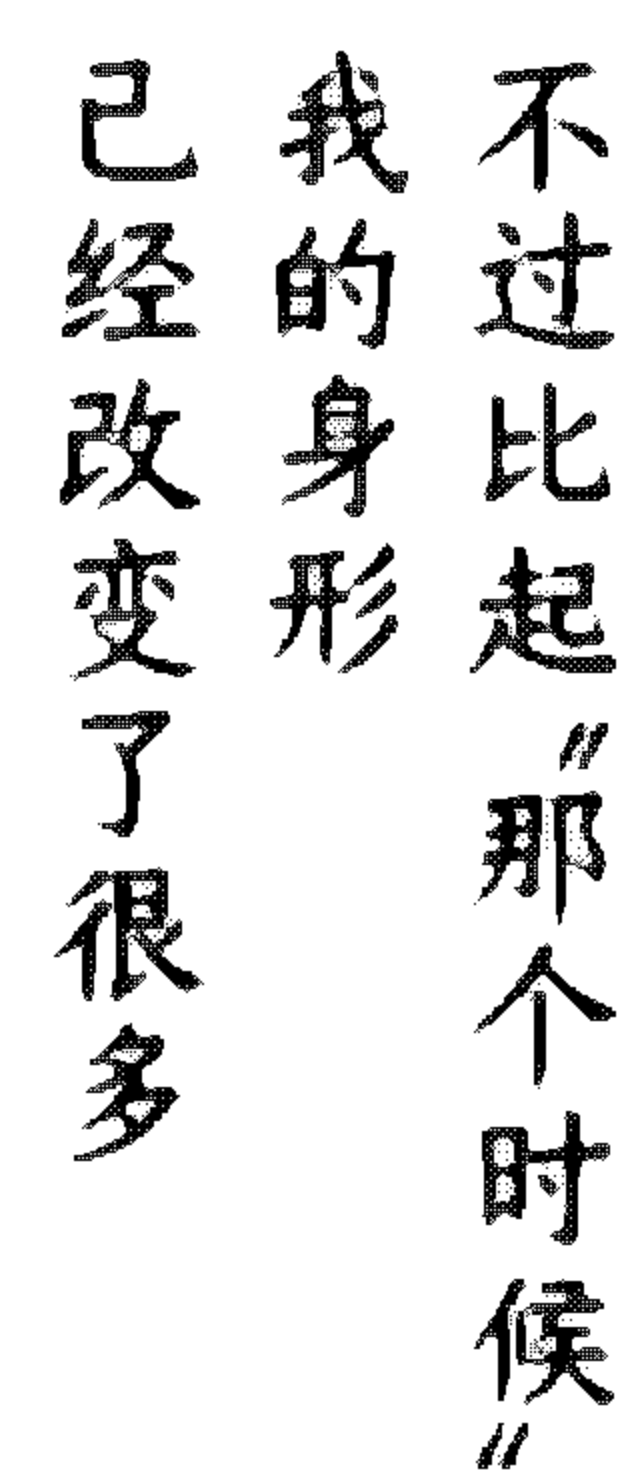 不过比起〃那个时候〃
我的身形
已经改变了很多